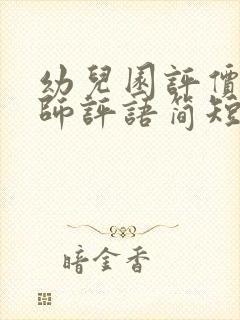 幼兒園評價
師評語簡短
暗金香